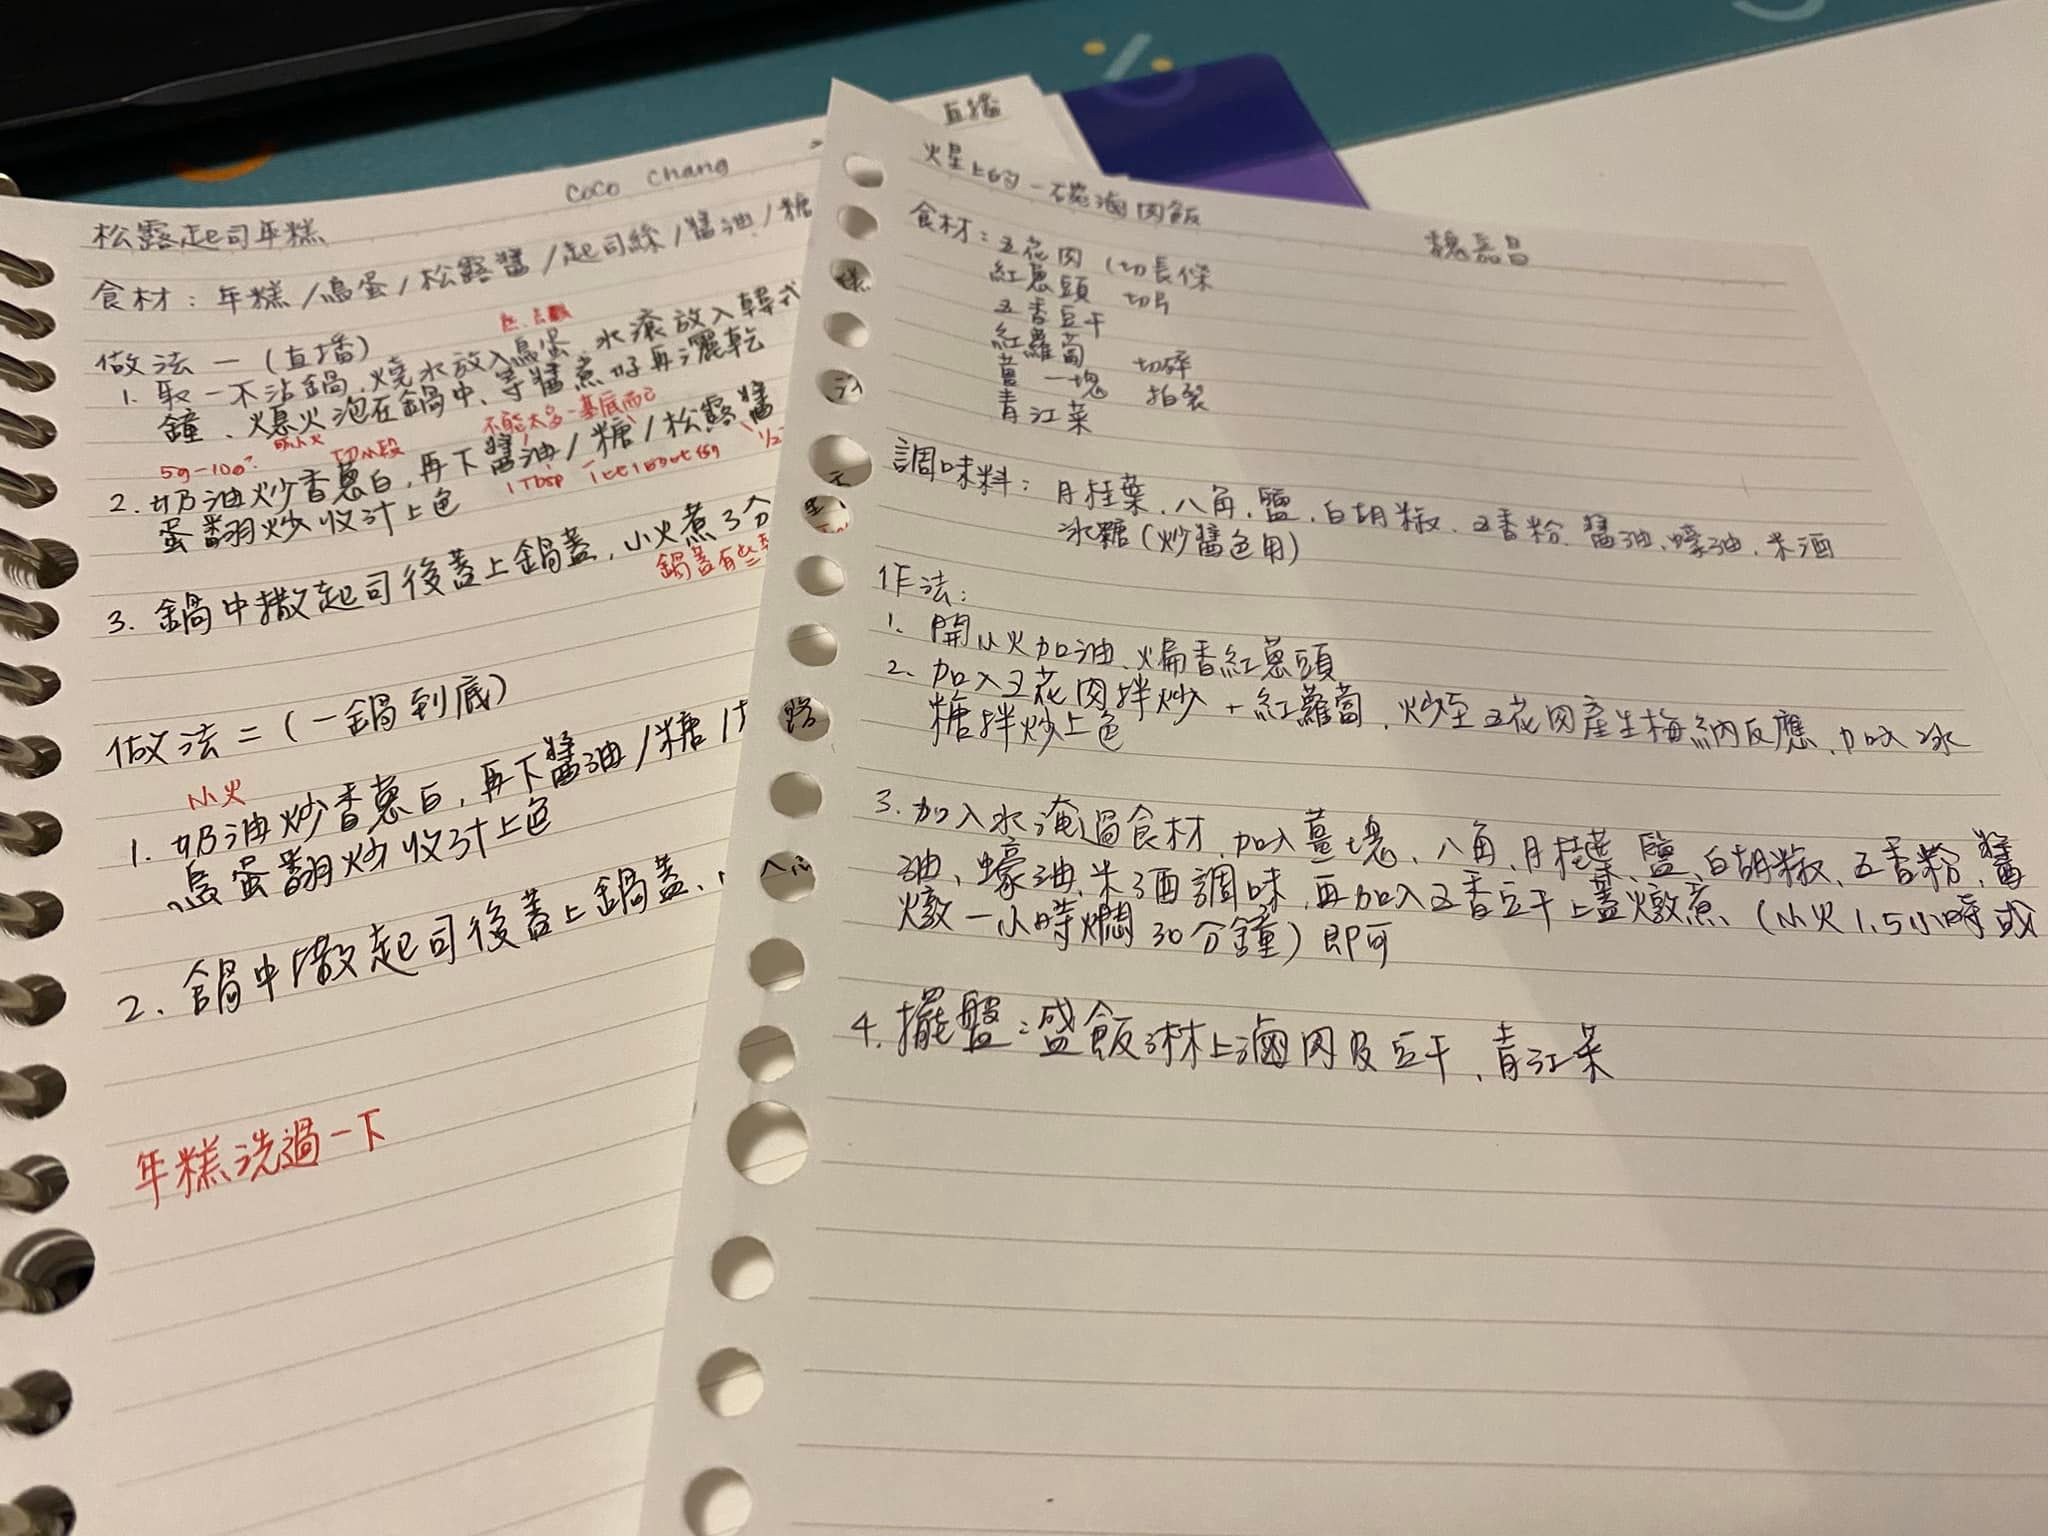 CoCo Chang
松露起司年糕
食材：年糕/鳥蛋/松露醬/起司絲/醬油/糖
做法一(直播)
1. 取一不沾鍋、燒水放入鳥蛋、水滾放入韓式
鐘、熄火泡在鍋中、等醬煮好再灑乾
不能太多一基底而已
5g-10g? 切小段
2. 奶油炒香蔥白，再下醬油/糖/松露醬
1Tbsp 1/2
蛋翻炒收汁上色
3. 鍋中撒起司後蓋上鍋蓋，小火煮3分
鍋蓋有些
做法二(一鍋到底)
小火
1. 奶油炒香蔥白，再下醬油/糖/
鳥蛋翻炒收汁上色
2. 鍋中撒起司後蓋上鍋蓋、
年糕洗過一下
直播
火星上的一碗滷肉飯
魏嘉昌
食材：五花肉(切長條
紅蔥頭 切片
五香豆干
紅蘿蔔 切碎
薑一塊 拍裂
青江菜
調味料：月桂葉、八角、鹽、白胡椒、五香粉、醬油、蠔油、米酒
冰糖(炒醬色用)
作法：
1. 開小火加油、煸香紅蔥頭
2. 加入五花肉拌炒+紅蘿蔔，炒至五花肉產生梅納反應、加入冰
糖拌炒上色
3. 加入水淹過食材，加入薑塊、八角、月桂葉、鹽、白胡椒、五香粉、醬
油、蠔油、米酒調味，再加入五香豆干上蓋燉煮、(小火1.5小時或
燉一小時燜30分鐘)即可
4. 擺盤：盛飯淋上滷肉及豆干、青江菜